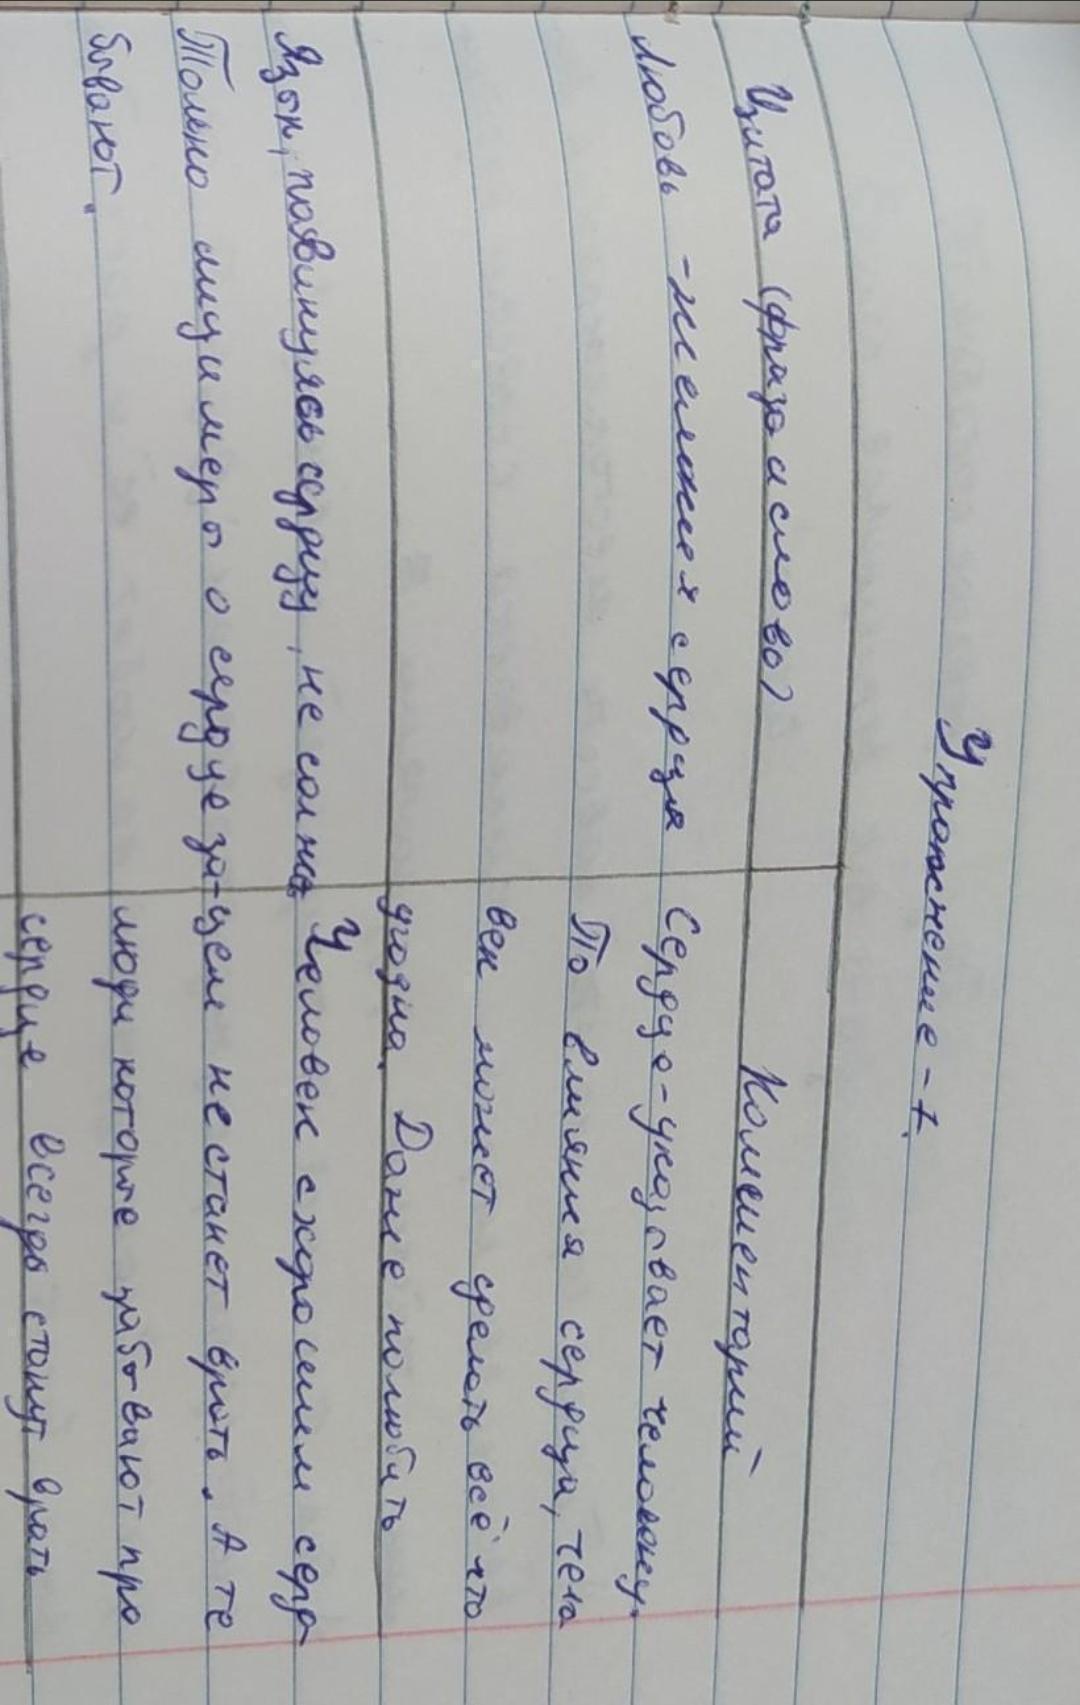 Упражнение - 1.
Цитата (фраза и слово) Комментарий
Любовь - жемчех сердца Сердце - указывает человеку.
По влияния сердца, чело
век может сделать всё что
угодно. Даже полюбить
Язык, повинуясь сердцу, не солжёт Человек с хорошим серд-
Только лицимеры о сердце за- цем не станет врать. А те
бывают. люди которые забывают про
сердце всегды станут врать